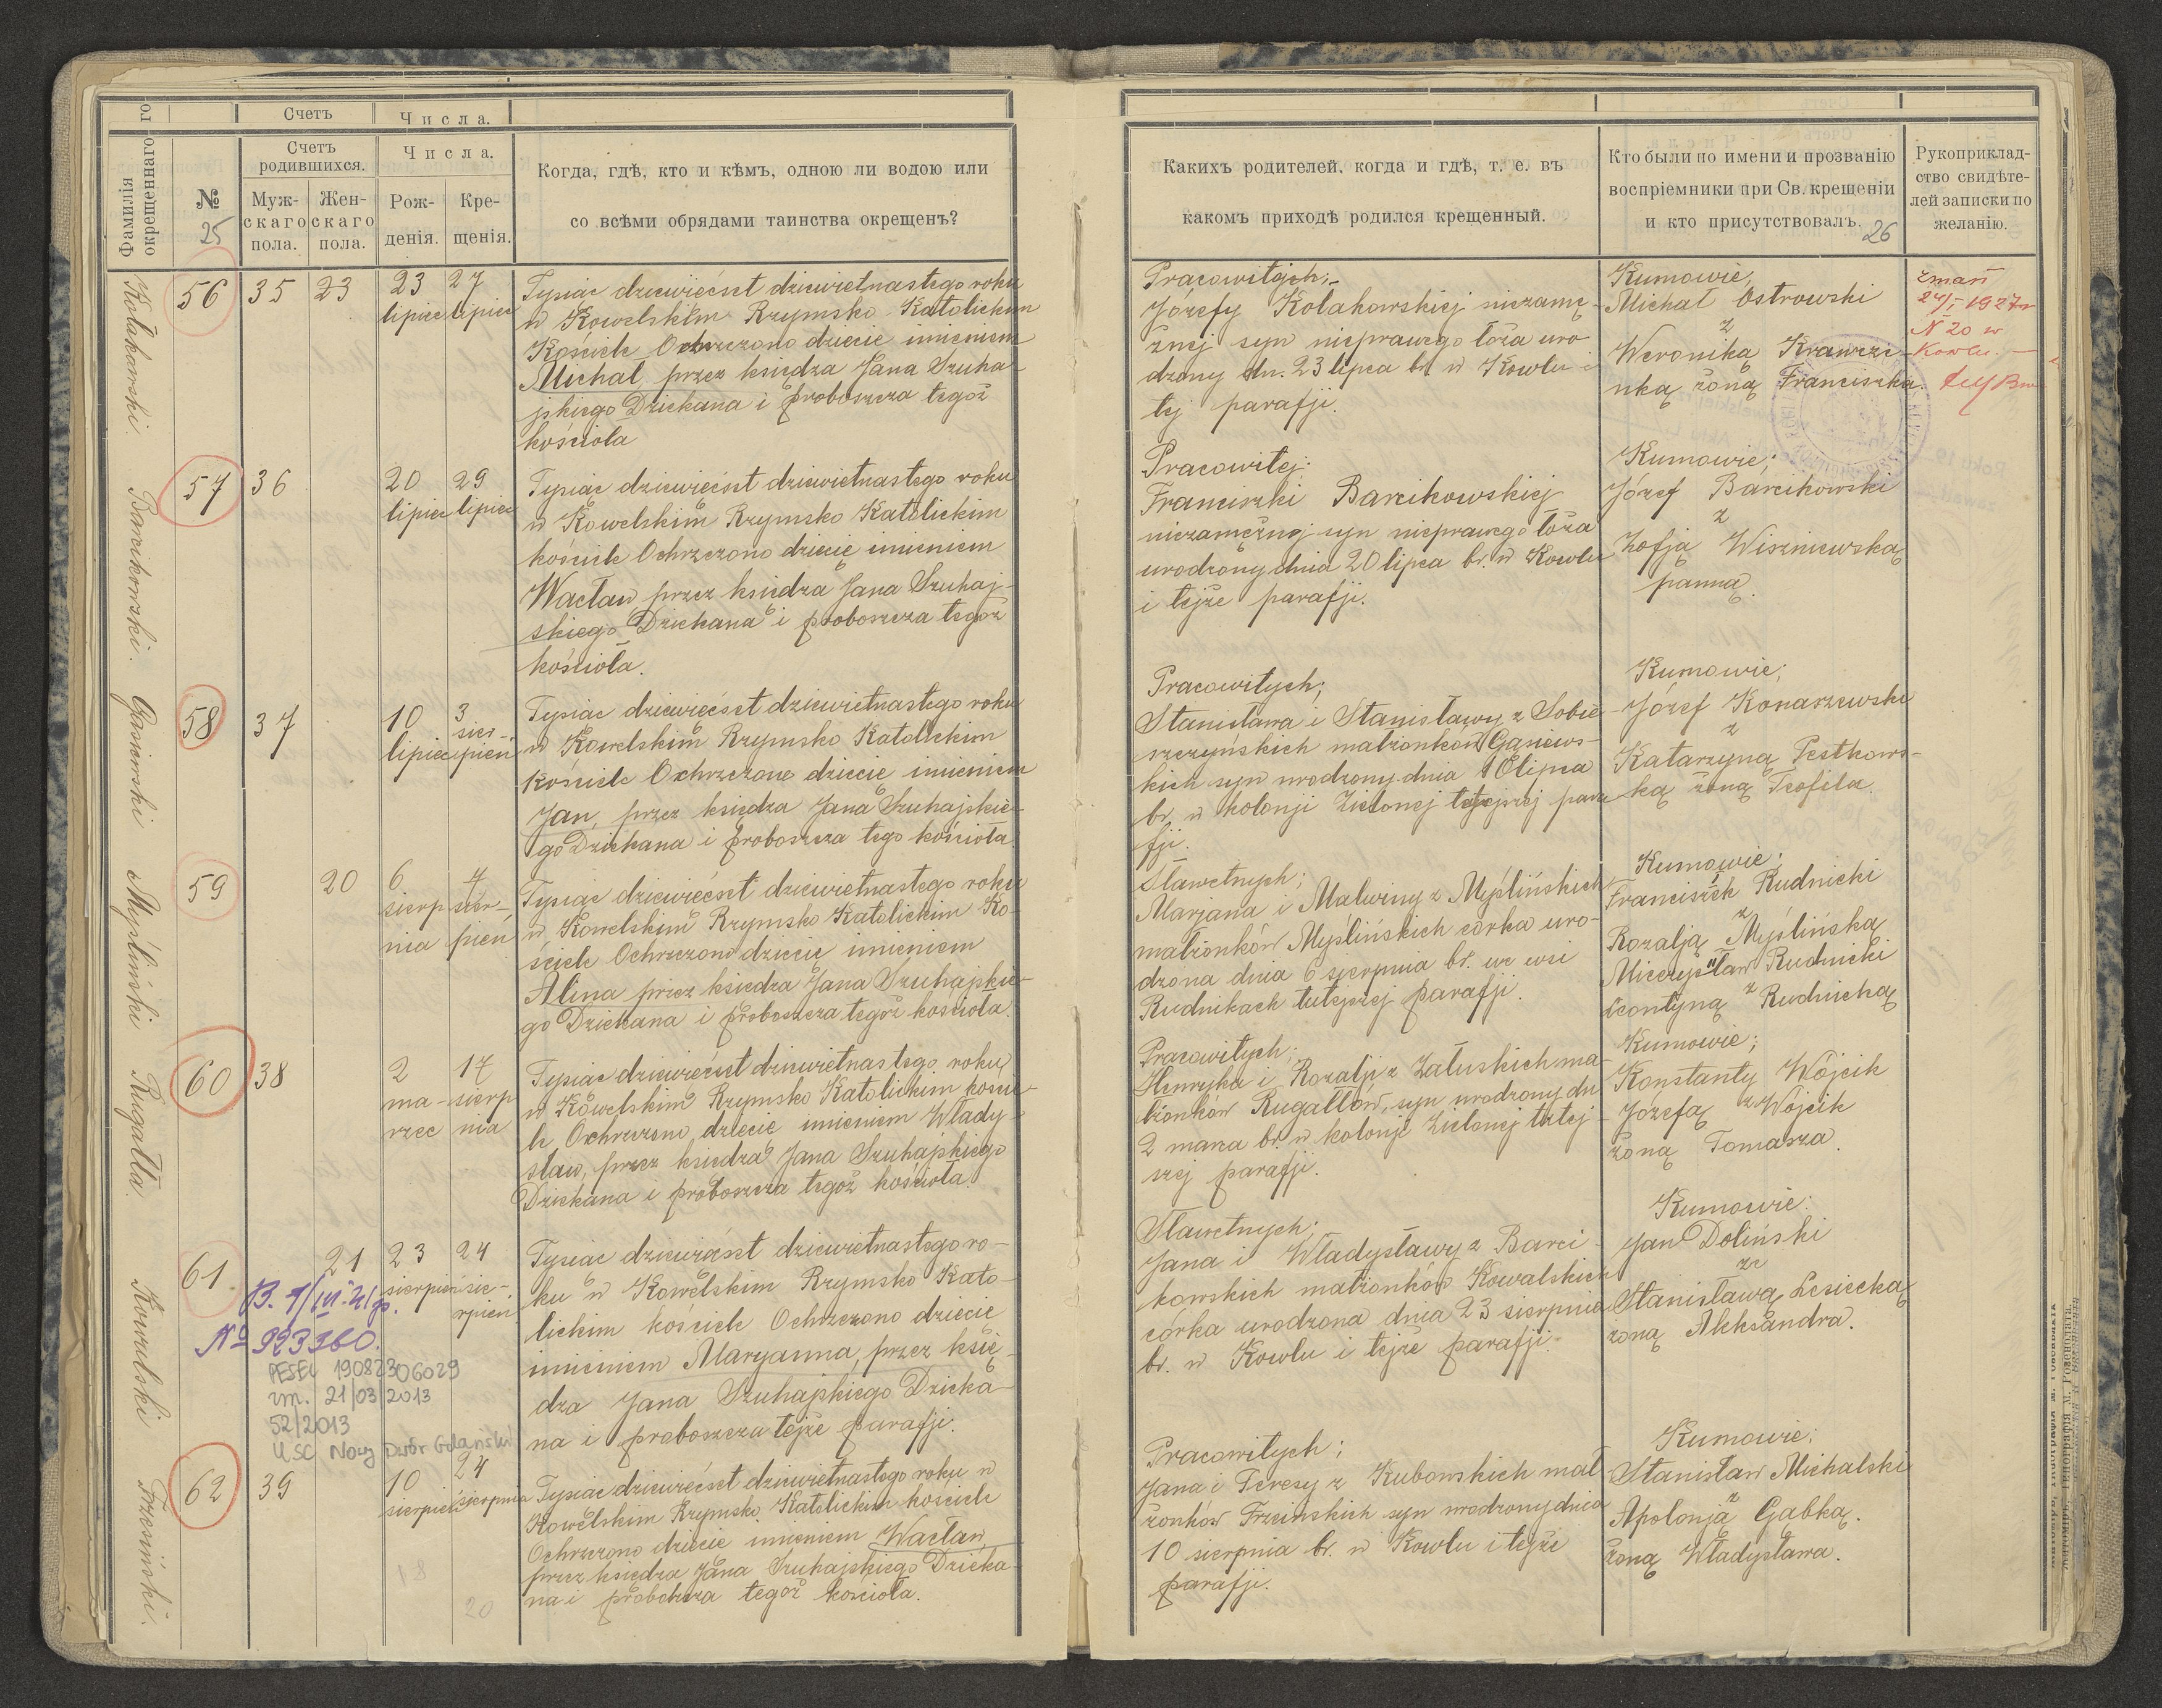 Фамилія окрещеннаго
го
Счетъ
Числа.
№
25
Счетъ родившихся.
Муж-скаго пола.
Жен-скаго пола.
Числа.
Рож-денія.
Кре-щенія.
Когда, гдѣ, кто и кѣмъ, одною ли водою или
со всѣми обрядами таинства окрещенъ?
Какихъ родителей, когда и гдѣ, т. е. въ
какомъ приходѣ родился крещенный.
Кто были по имени и прозванію
воспріемники при Св. крещеніи
и кто присутствовалъ.
26
Рукоприклад-
ство свидѣте-
лей записки по
желанію.
Kołakowski.
56
35
23
23 lipiec
27 lipiec
Tysiąc dziewięćset dziewietnastego roku
w Kowelskim Rzymsko Katolickim
Kościele Ochrzczono dziecie imieniem
Michał przez księdza Jana Szuha-
jskiego Dziekana i proboszcza tegoż
kościoła
Pracowitych;
Józefy Kołakowskiej niezamę-
żnej syn nieprawego łoża uro
dzony dn. 23 lipca br. w Kowlu i
tej parafji.
Kumowie,
Michał Ostrowski
z
Weroniką Krawczi-
nką żoną Franciszka.
zmarł
24/I 1927 r
N 20 w
Kowlu.
Barcikowski.
57
36
20 lipiec
29 lipiec
Tysiąc dziewięćset dziewietnastego roku
w Kowelskim Rzymsko Katolickim
kościele Ochrzczono dziecię imieniem
Wacław przez księdza Jana Szuhaj-
skiego Dziekana i proboszcza tegoż
kościoła.
Pracowitej:
Franciszki Barcikowskiej
niezamężnej syn nieprawego łoża
urodzony dnia 20 lipca br. w Kowlu
i tejże parafji.
Kumowie;
Józef Barcikowski
z
Zofją Wiszniewską
panną.
Gąsiewski
58
37
10 lipiec
3 sier-pień
Tysiąc dziewięćset dziewietnastego roku
w Kowelskim Rzymsko Katolickim
Kościele Ochrzczono dziecie imieniem
Jan, przez księdza Jana Szuhajskie-
go Dziekana i proboszcza tego kościoła
Pracowitych;
Stanisława i Stanisławy z Sobie-
szczyńskich małżonków Gąsiews-
kich syn urodzony dnia 10 lipca
br. w kolonji Zielonej tutejszej para
fji.
Kumowie;
Józef Konaszewski
z
Katarzyną Pestkows-
ką żoną Teofila.
Myśliński
59
20
6 sierp nia
7 sier-pień
Tysiąc dziewięćset dziewietnastego roku
w Kowelskim Rzymsko Katolickim Ko-
ściele Ochrzczono dziecię imieniem
Alina przez księdza Jana Szuhajskie-
go Dziekana i proboszcza tegoż kościoła.
Sławetnych;
Marjana i Malwiny z Myślińskich
małżonków Myślińskich córka uro-
dzona dnia 6 sierpnia br. we wsi
Rudnikach tutejszej parafji.
Kumowie;
Franciszek Rudnicki
z
Rozalją Myślińską
Mieczysław Rudnicki
z
Leontyną Rudnicką
Rugałła.
60
38
2 ma-rzec
17 sierp nia
Tysiąc dziewięćset dziewietnastego roku
w Kowelskim Rzymsko Katolickim koście-
le Ochrzczono dziecie imieniem Włady-
sław, przez księdza Jana Szuhajskiego
Dziekana i proboszcza tegoż kościoła.
Pracowitych;
Henryka i Rozalji z Załuskich ma-
łżonków Rugałłów, syn urodzony dn
2 marca br. w kolonji Zielonej tutej-
szej parafji.
Kumowie;
Konstanty Wójcik
z
Józefą Wójcik
żoną Tomasza.
Kowalski
61.
21
23 sierpień
24 sie-rpień
B. 1/III-41 р.
№ 923360.
PESEL 19082306029
zm. 21/03/2013
52/2013
USC Nowy Dwór Gdański
Tysiąc dziewięćset dziewietnastego ro-
ku w Kowelskim Rzymsko Kato-
lickim kościele Ochrzczono dziecie
imieniem Maryanna, przez księ-
dza Jana Szuhajskiego Dzieka-
na i proboszcza tejże parafji.
Sławetnych;
Jana i Władysławy z Barci-
kowskich małżonków Kowalskich
córka urodzona dnia 23 sierpnia
br. w Kowlu i tejże parafji.
Kumowie:
Jan Doliński
ze
Stanisławą Lesiecką
żoną Aleksandra.
Trzciński.
62
39
10 sierpień
24 sierpnia
18
20
Tysiąc dziewięćset dziewietnastego roku w
Kowelskim Rzymsko Katolickim kościele
Ochrzczono dziecie imieniem Wacław,
przez księdza Jana Szuhajskiego Dzieka-
na i proboszcza tegoż kościoła.
Pracowitych;
Jana i Teresy z Kubowskich mał-
żonków Trzcinskich syn urodzony dnia
10 sierpnia br. w Kowlu i tejże
parafji.
Kumowie;
Stanisław Michalski
z
Apolonją Gabką.
żoną Władysława.
Житомиръ, Типографія М. Розенблата.